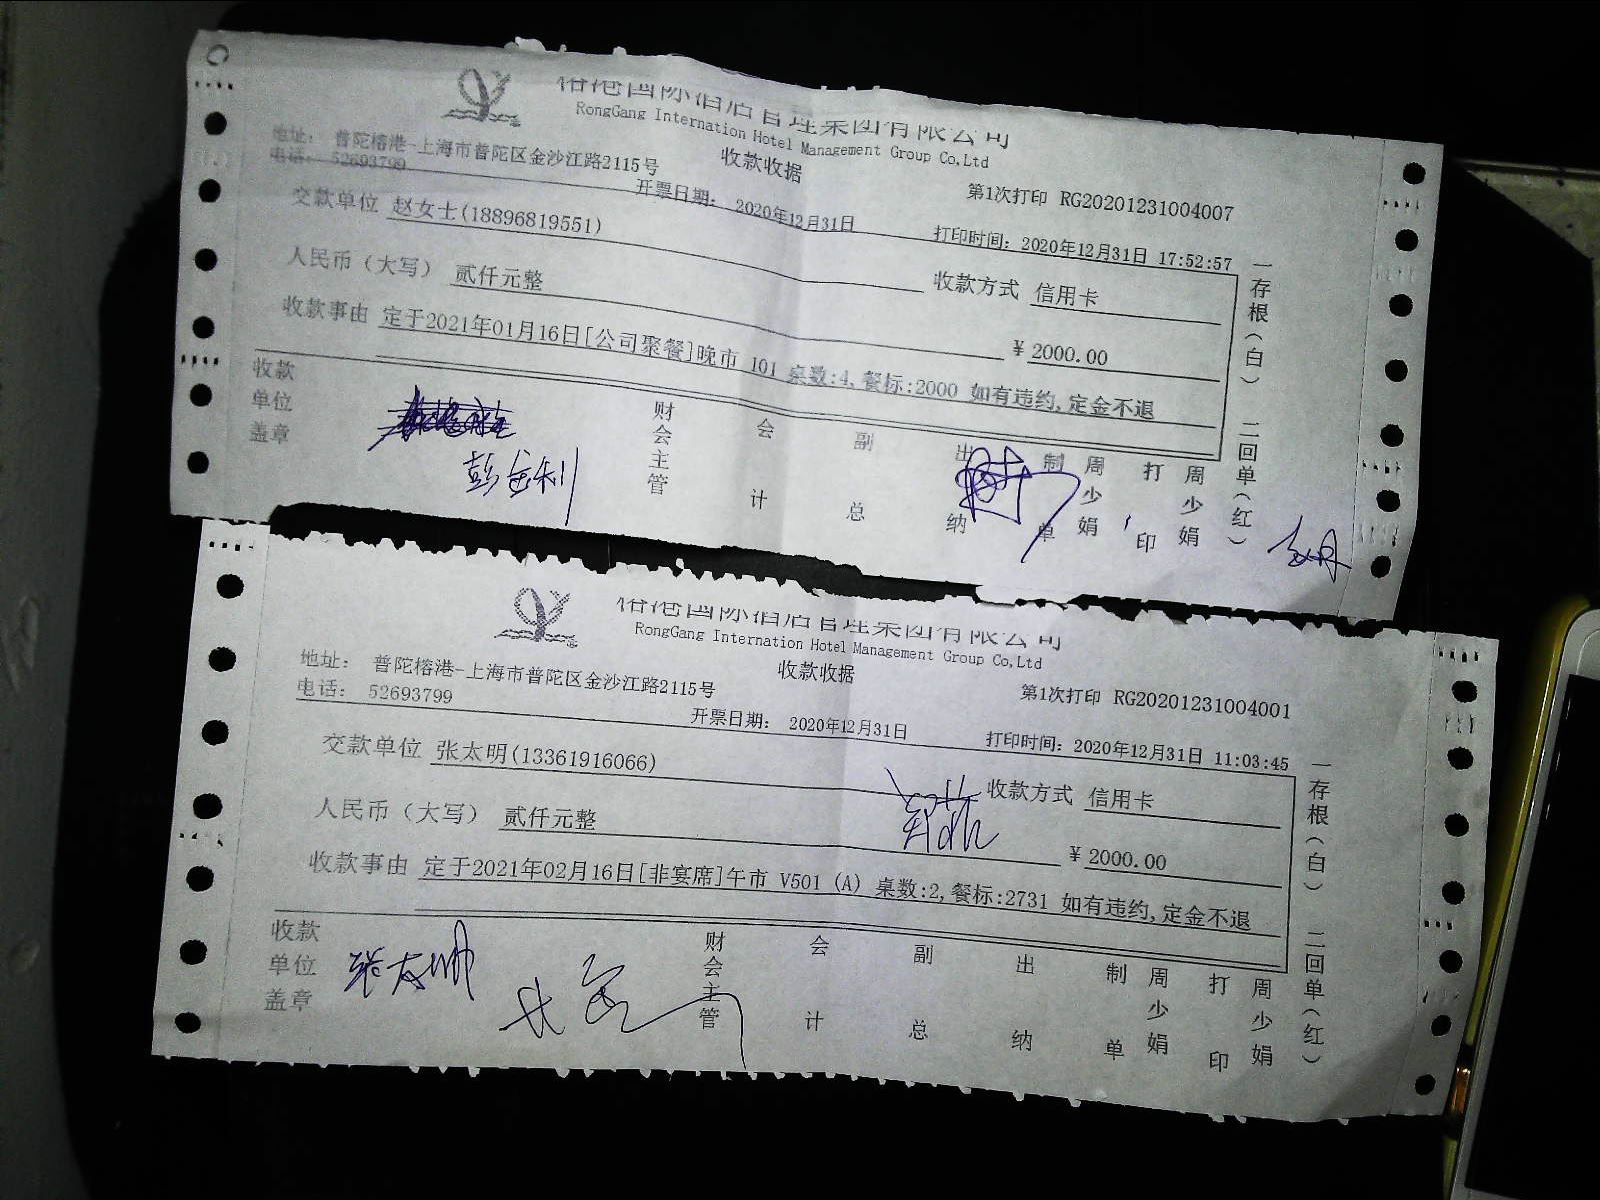 榕港国际酒店管理集团有限公司
RongGang Internation Hotel Management Group Co,Ltd
收款收据
地址： 普陀榕港-上海市普陀区金沙江路2115号
电话： 52693799
开票日期： 2020年12月31日
第1次打印 RG20201231004007
打印时间：2020年12月31日 17:52:57
交款单位 赵女士(18896819551)
收款方式 信用卡
人民币（大写） 贰仟元整
￥2000.00
收款事由 定于2021年01月16日[公司聚餐]晚市 101 桌数:4,餐标:2000 如有违约,定金不退
收款单位盖章
彭金利
财会主管
会计
副总
出纳
制单
周少娟
打印
周少娟
一存根（白） 二回单（红）
榕港国际酒店管理集团有限公司
RongGang Internation Hotel Management Group Co,Ltd
收款收据
地址： 普陀榕港-上海市普陀区金沙江路2115号
电话： 52693799
开票日期： 2020年12月31日
第1次打印 RG20201231004001
打印时间：2020年12月31日 11:03:45
交款单位 张太明(13361916066)
收款方式 信用卡
人民币（大写） 贰仟元整
￥2000.00
收款事由 定于2021年02月16日[非宴席]午市 V501 (A) 桌数:2,餐标:2731 如有违约,定金不退
收款单位盖章
财会主管
会计
副总
出纳
制单
周少娟
打印
周少娟
一存根（白） 二回单（红）